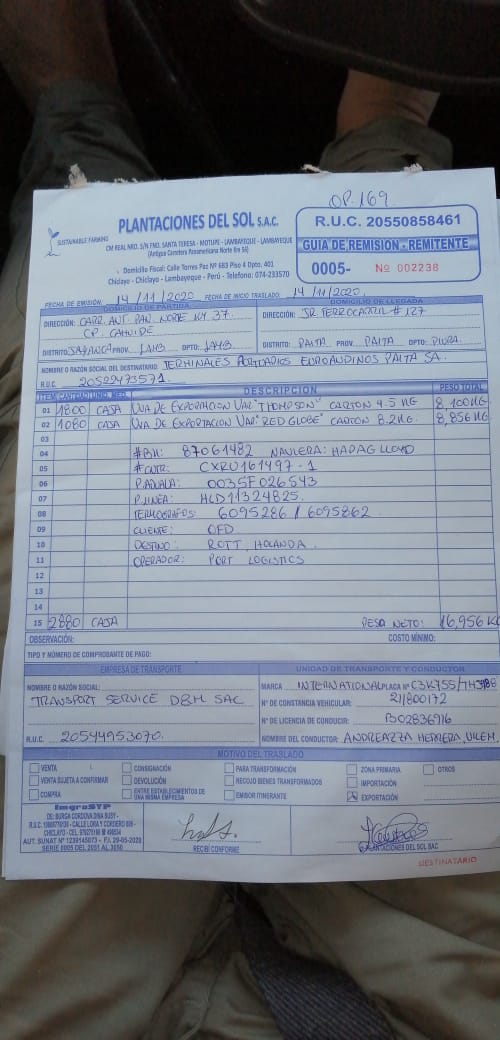 OP. 169
PLANTACIONES DEL SOL S.A.C.
SUSTAINABLE FARMING
CM REAL NRO. S/N FND. SANTA TERESA - MOTUPE - LAMBAYEQUE - LAMBAYEQUE
(Antigua Carretera Panamericana Norte Km 56)
Domicilio Fiscal: Calle Torres Paz Nº 683 Piso 4 Dpto. 401
Chiclayo - Chiclayo - Lambayeque - Perú - Telefono: 074-233570
R.U.C. 20550858461
GUIA DE REMISION - REMITENTE
0005- Nº 002238
FECHA DE EMISIÓN: 14/11/2020 FECHA DE INICIO TRASLADO: 14/11/2020.
DOMICILIO DE PARTIDA
DIRECCIÓN: CARR. ANT. PAN. NORTE KM 37.
CP. CAHUIDE
DISTRITO: JAYANCA PROV. LAMB DPTO: LAMB.
DOMICILIO DE LLEGADA
DIRECCIÓN: JR. FERROCARRIL # 127
DISTRITO: PAITA PROV. PAITA DPTO: PIURA.
NOMBRE O RAZÓN SOCIAL DEL DESTINATARIO: TERMINALES PORTUARIOS EUROANDINOS PAITA SA.
R.U.C. 20522473571
ITEM CANTIDAD UNID. MED. DESCRIPCION PESO TOTAL
01 1800 CAJA UVA DE EXPORTACION VAR "THOMPSON" CARTON 4.5 KG 8,100KG
02 1080 CAJA UVA DE EXPORTACION VAR "RED GLOBE" CARTON 8.2KG. 8,856KG
03
04 #BK: 87061482 NAVIERA: HAPAG LLOYD
05 #CNTR: CXRU161497-1
06 P. ADUANA: 0035F026543
07 P. LINEA: HLD11324825.
08 TERMOGRAFOS: 6095286 / 6095862
09 CLIENTE: OFD
10 DESTINO: ROTT, HOLANDA.
11 OPERADOR: PORT LOGISTICS
12
13
14
15 2880 CAJA PESO NETO: 16,956 KG
OBSERVACIÓN: COSTO MÍNIMO:
TIPO Y NÚMERO DE COMPROBANTE DE PAGO:
EMPRESA DE TRANSPORTE
NOMBRE O RAZÓN SOCIAL:
TRANSPORT SERVICE D&M SAC
R.U.C. 20544953070.
UNIDAD DE TRANSPORTE Y CONDUCTOR
MARCA INTERNATIONAL PLACA Nº C3K455/
Nº DE CONSTANCIA VEHICULAR: 211800172
Nº DE LICENCIA DE CONDUCIR: B02836916
NOMBRE DEL CONDUCTOR: ANDREAZZA HERRERA,
MOTIVO DEL TRASLADO
VENTA CONSIGNACIÓN PARA TRANSFORMACIÓN ZONA PRIMARIA OTROS
VENTA SUJETA A CONFIRMAR DEVOLUCIÓN RECOJO BIENES TRANSFORMADOS IMPORTACIÓN
COMPRA ENTRE ESTABLECIMIENTOS DE UNA MISMA EMPRESA EMISOR ITINERANTE EXPORTACIÓN
ImgraSYP
DE: BURGA CORDOVA DINA SUSY -
CHICLAYO -
SERIE 0005 DEL 2051 AL 3050
RECIBI CONFORME
PLANTACIONES DEL SOL SAC
DESTINATARIO